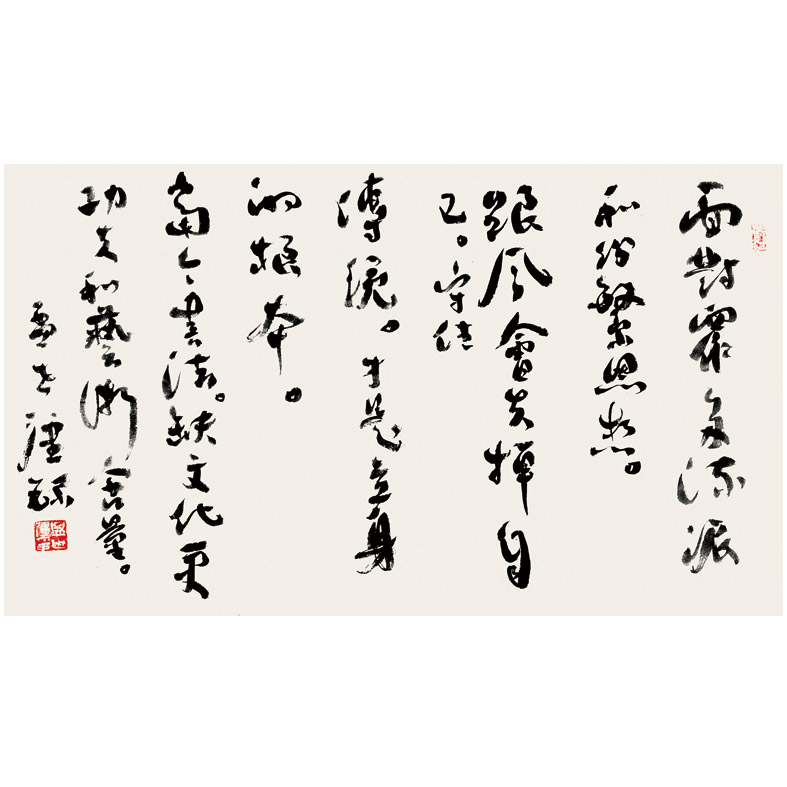 面對眾多流派
和紛繁思想。
跟風會失掉自
己。守住
傳統。才是立身
的根本。
當今書法。缺文化更
功夫和藝術含量。